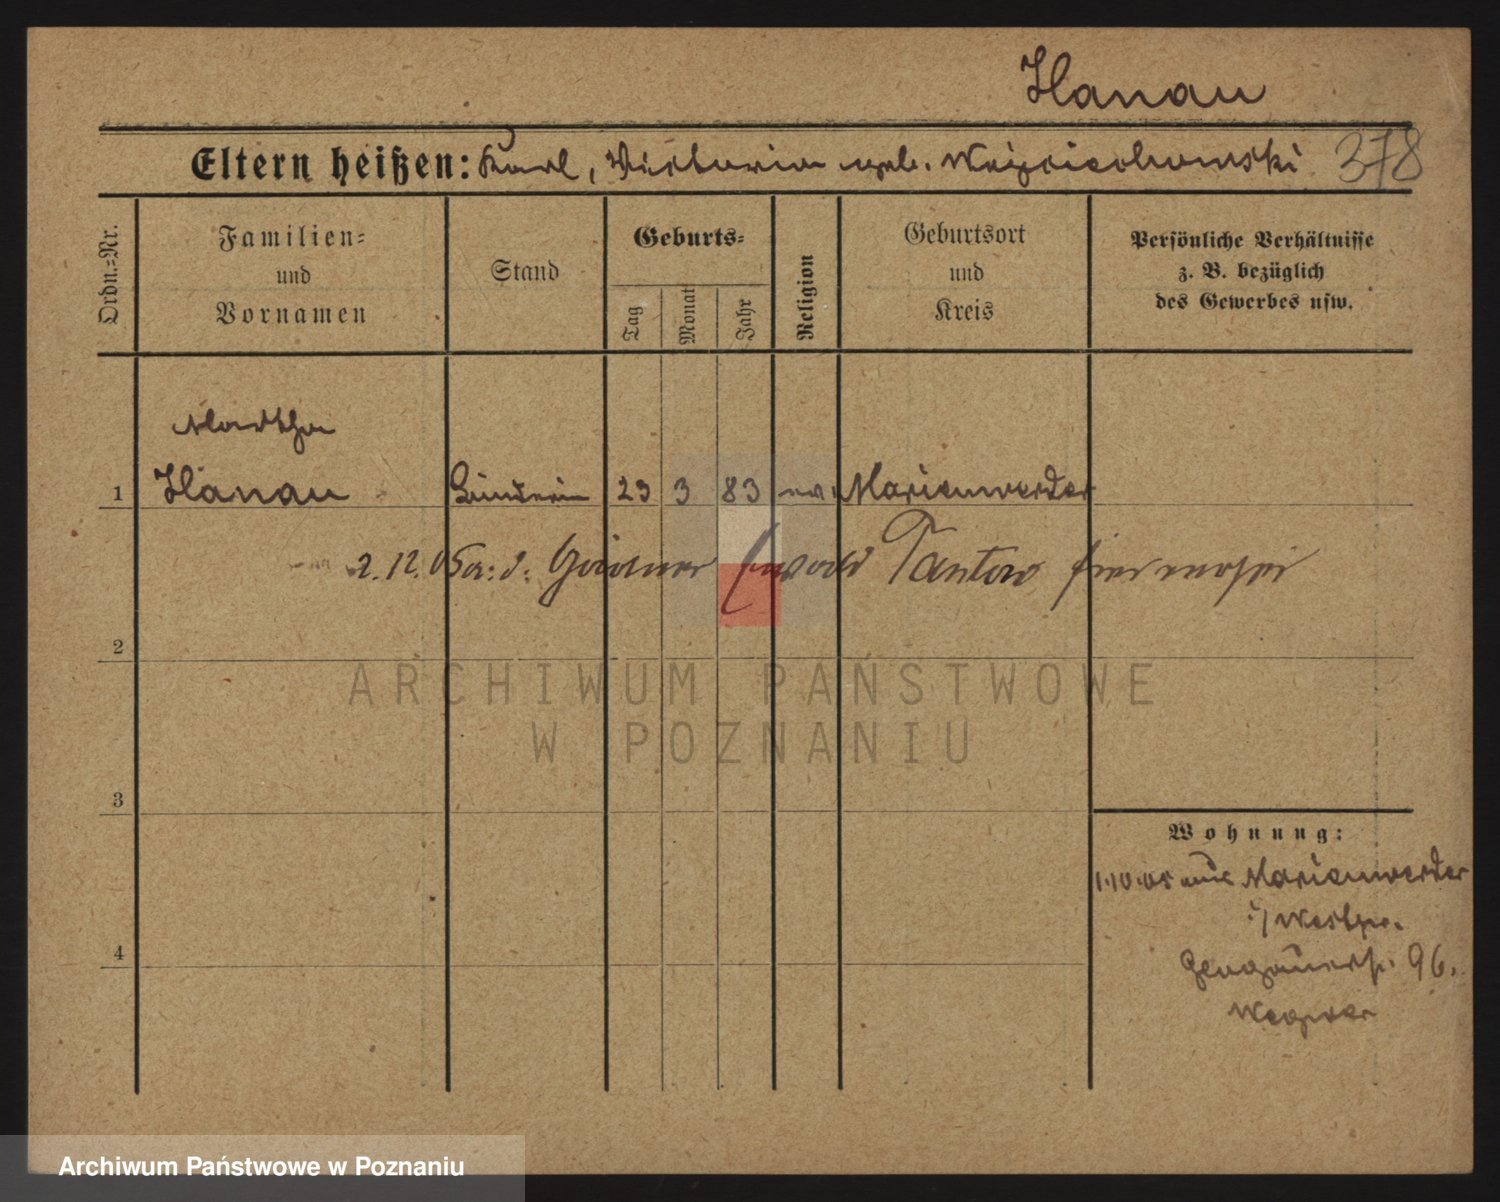 Hanau
Eltern heißen: Karl, Victoria geb. Woiciechowski 378
Ordn.-Nr.
Familien-
und
Vornamen
Stand
Geburts-
Tag
Monat
Jahr
Religion
Geburtsort
und
Kreis
Persönliche Verhältnisse
z. B. bezüglich
des Gewerbes usw.
Martha
1 Hanau 23 3 83 ev. Marienwerder
2.12.05 a. d. Gärtner Ewald Tantow
2
ARCHIWUM PAŃSTWOWE
W POZNANIU
3
Wohnung:
1.10.05 aus Marienwerder
i/ Westpr.
Glogauerstr. 96.
4
Archiwum Państwowe w Poznaniu